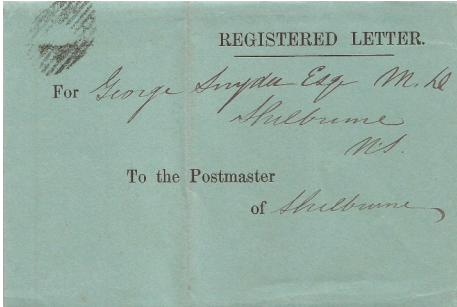 REGISTERED LETTER.
For George Snyder Esqr M.D
Shelburne
N.S.
To the Postmaster
of Shelburne